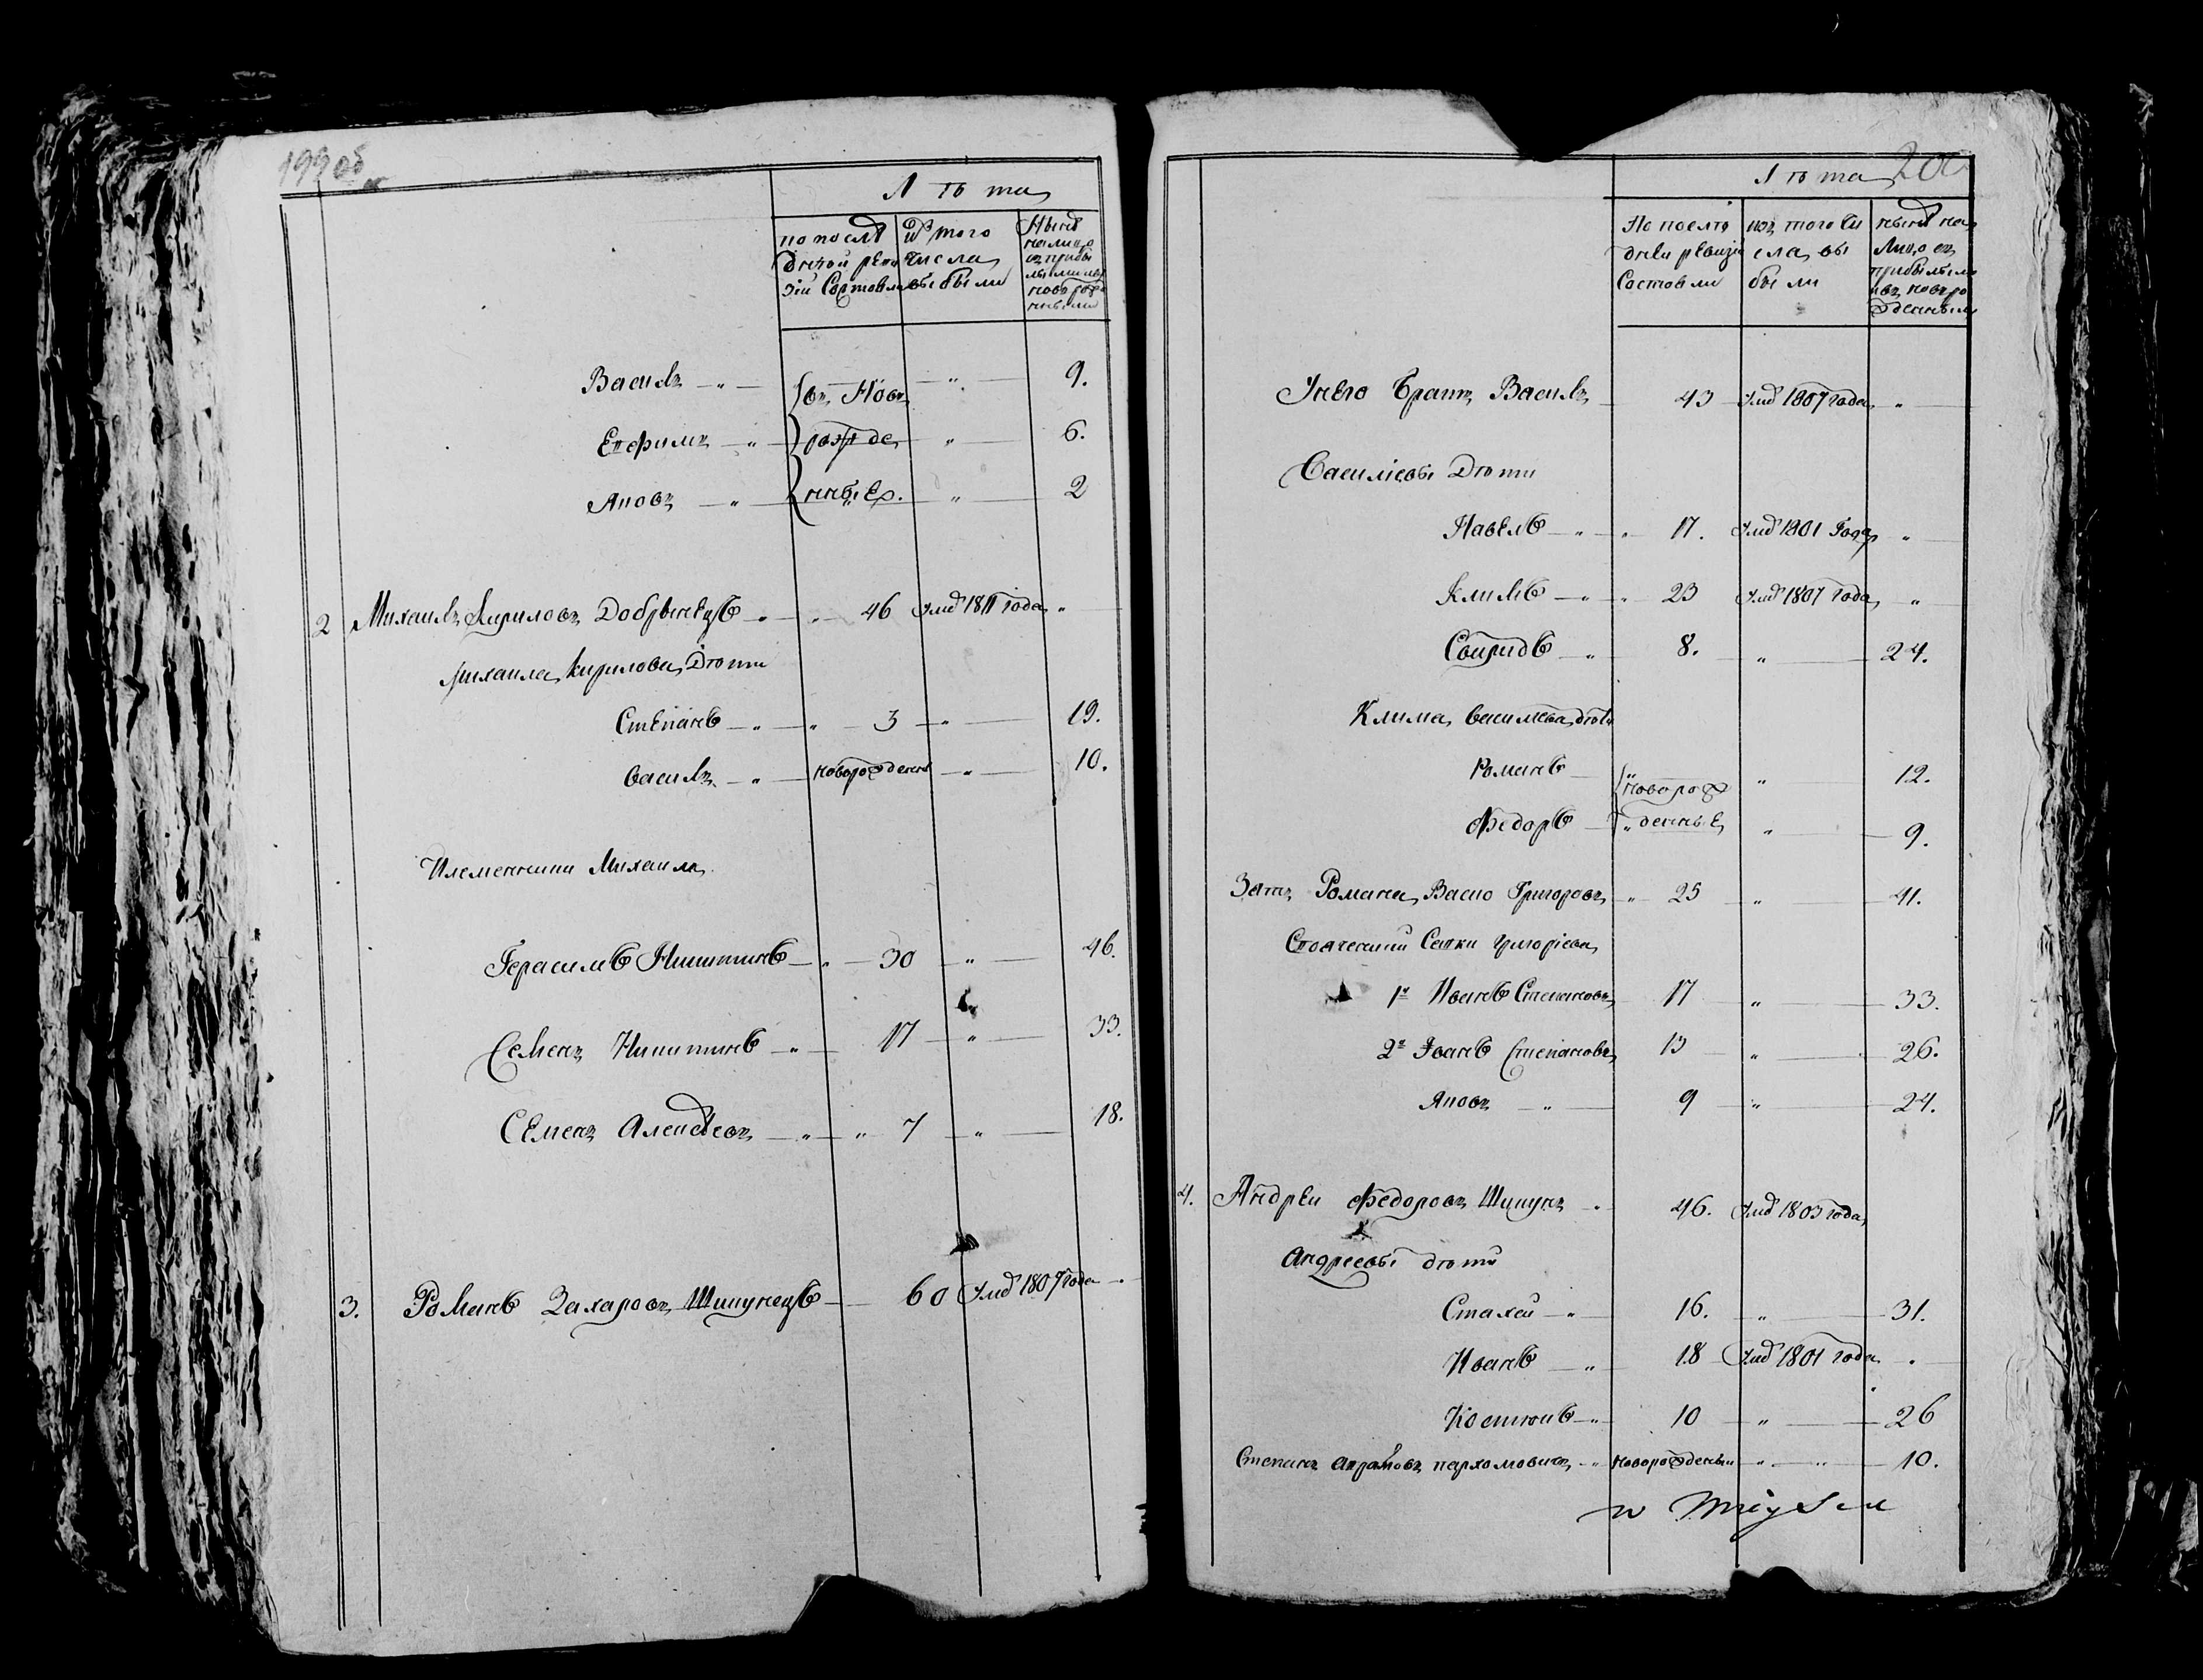 199 об
Лѣта
по послѣдней ревизіи состояли
изъ того числа выбыли
Нынѣ на лицо съ прибылыми и новорожденными
Василъ 9.
въ Нов
Евфимъ рожде 6.
Яковъ нные 2
2 Михаилъ Кириловъ Добрынецъ 46 умд 1811 года
Михаила Кирилова дѣти
Степанъ 3 19.
Василъ новорожденны 10.
Племенники Михаила
Герасимъ Никитинъ 30 46.
Семенъ Никитинъ 17 33.
Семенъ Алексѣевъ 7 18.
3. Романъ Захаровъ Шипунецъ 60 умд 1807 года
200
Лѣта
По послѣдней ревизіи состояли
изъ того числа выбыли
нынѣ на лицо съ прибылыми и новорожденными
У него братъ Василъ 43 умд 1807 года
Василіевы дѣти
Павелъ 17. умд 1801 года
Климъ 23 умд 1807 года
Свиридъ 8. 24.
Клима Василіева дѣти
Романъ новорож 12.
Федоръ денные 9.
Зять Романа Васко Григоровъ 25 41.
Григоріева
1й Иванъ Степановъ 17 33.
2й Иванъ Степановъ 13 26.
Яковъ 9 24.
4. Андрей Федоровъ Шипунъ 46. умд 1803 года
Андреевы дѣти
Стахей 16. 31.
Иванъ 18 умд 1801 года
Костюкъ 10 26
Степанъ пархомовичъ новорожденны 10.